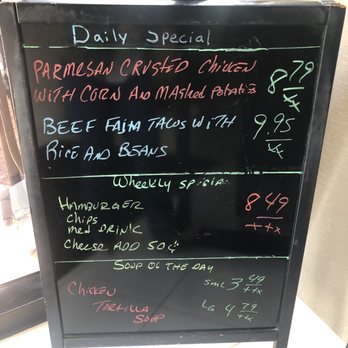 Daily Special
PARMESAN CRUSTED CHICKEN 8 79 +tx
WITH CORN AND MASHED POTATOES
BEEF FAJITA TACOS WITH 9.95 +tx
RICE AND BEANS
Wheekly SPECIAL
HAMBURGER 8 49 ++x
chips
med DRINK
Cheese ADD 50¢
SOUP OF THE DAY
CHICKEN sml 3 49 ++x
TORTILLA LG 4 79 +tx
SOUP